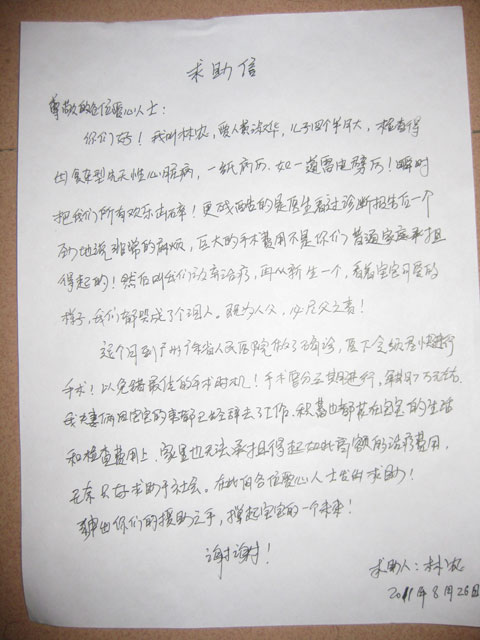 求助信
尊敬的各位爱心人士：
你们好！我叫林农，爱人黄淑华，儿子四个半月大，检查得
出复杂型先天性心脏病，一纸病历，如一道雷电劈历！瞬时
把我们所有欢乐击碎！更残酷的是医生看过诊断报告后一个
劲地说非常的麻烦，巨大的手术费用不是你们普通家庭承担
得起的！然后叫我们放弃治疗，再从新生一个，看着宝宝可爱的
样子，我们都哭成了个泪人。既为人父，必尽父之责！
这个月到广州广东省人民医院做了确诊，医下令须尽快进行
手术！以免错最佳的手术时机！手术需分三期进行，每期7万元左右。
我夫妻俩因宝宝的事都已经辞去了工作，积蓄也都花在宝宝的生活
和检查费用上，家里也无法承担得起如此高额的治疗费用，
无奈只好求助于社会。在此向各位爱心人士发出求助！
伸出你们的援助之手，撑起宝宝的一个未来！
谢谢！
求助人：林农
2011年8月26日